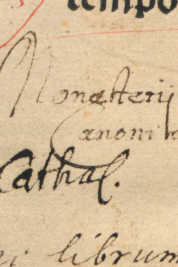 tempo
Monasterij
Canoni
Cathal.
librum